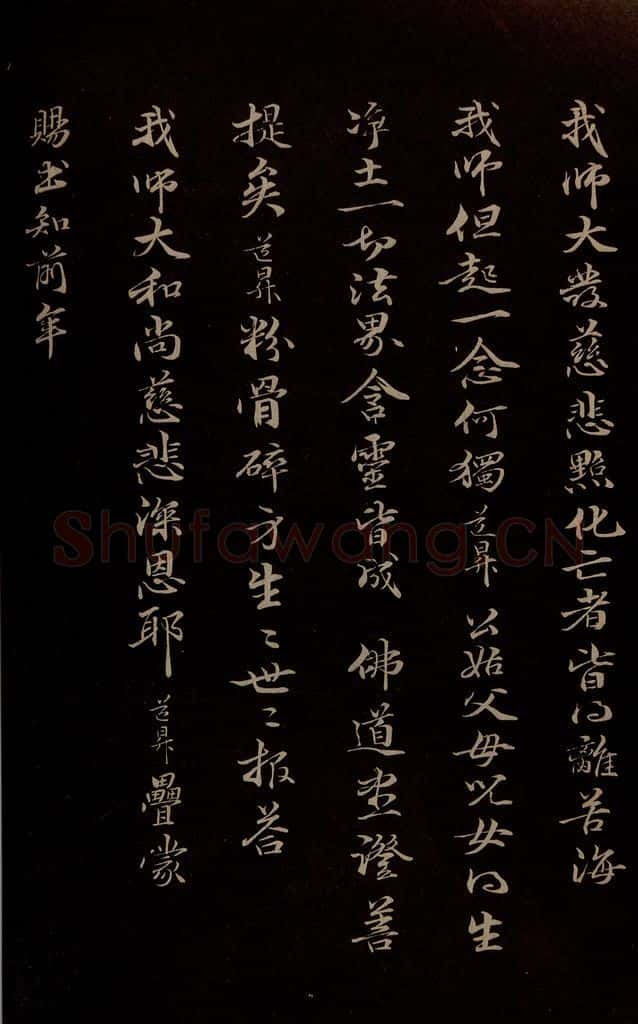 我师大發慈悲點化亡者皆得離苦海
我师但起一念何獨道昇公姑父母児女得生
净土一切法界含靈皆成佛道尽證菩
提矣道昇粉骨碎身生〻世〻报荅
我师大和尚慈悲深恩耶道昇疊蒙
賜书知前年
Shufawang.CN